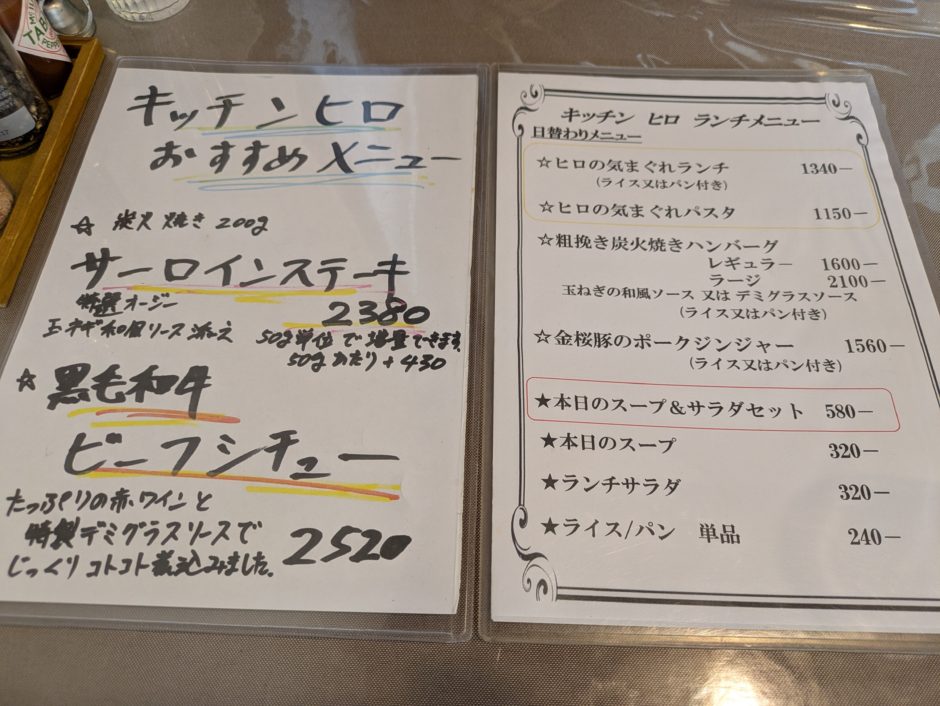 キッチンヒロ
おすすめメニュー
☆ 炭火焼き 200g
サーロインステーキ
特選オージー 2380
玉ネギ和風ソース添え 50g単位で増量できます。
50gあたり+430
☆ 黒毛和牛
ビーフシチュー
たっぷりの赤ワインと
特製デミグラスソースで
じっくりコトコト煮込みました。 2520
キッチン ヒロ ランチメニュー
日替わりメニュー
☆ヒロの気まぐれランチ 1340ー
(ライス又はパン付き)
☆ヒロの気まぐれパスタ 1150ー
☆粗挽き炭火焼きハンバーグ
レギュラー 1600ー
ラージ 2100ー
玉ねぎの和風ソース 又は デミグラスソース
(ライス又はパン付き)
☆金桜豚のポークジンジャー 1560ー
(ライス又はパン付き)
★本日のスープ&サラダセット 580ー
★本日のスープ 320ー
★ランチサラダ 320ー
★ライス/パン 単品 240ー